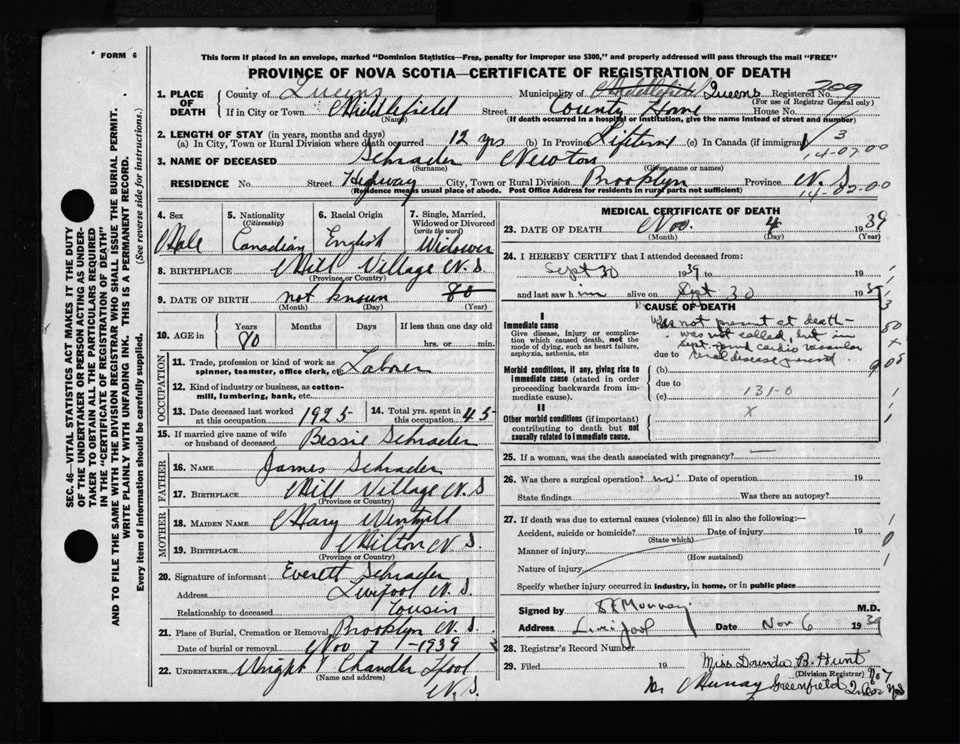 FORM 6
This form if placed in an envelope, marked "Dominion Statistics—Free, penalty for improper use $300," and properly addressed will pass through the mail "FREE"
PROVINCE OF NOVA SCOTIA—CERTIFICATE OF REGISTRATION OF DEATH
SEC. 46—VITAL STATISTICS ACT MAKES IT THE DUTY
OF THE UNDERTAKER OR PERSON ACTING AS UNDER-
TAKER TO OBTAIN ALL THE PARTICULARS REQUIRED
IN THE "CERTIFICATE OF REGISTRATION OF DEATH"
AND TO FILE THE SAME WITH THE DIVISION REGISTRAR WHO SHALL ISSUE THE BURIAL PERMIT.
WRITE PLAINLY WITH UNFADING INK. THIS IS A PERMANENT RECORD.
Every item of information should be carefully supplied. (See reverse side for instructions.)
1. PLACE OF DEATH
County of Queens Municipality of Queens Registered No. 209
(For use of Registrar General only)
If in City or Town Middlefield Street County Home House No.
(Name) (If death occurred in a hospital or institution, give the name instead of street and number)
2. LENGTH OF STAY (in years, months and days)
(a) In City, Town or Rural Division where death occurred 12 yrs (b) In Province Lifetime (c) In Canada (if immigrant)
3
14-07-00
3. NAME OF DECEASED Schrader Newton
(Surname) (Given name or names)
RESIDENCE No. Street Highway City, Town or Rural Division Brooklyn Province N.S
(Residence means usual place of abode. Post Office Address for residents in rural parts not sufficient)
14-07-00
4. Sex Male
5. Nationality (Citizenship) Canadian
6. Racial Origin English
7. Single, Married, Widowed or Divorced (write the word) Widower
8. BIRTHPLACE Mill Village N.S
(Province or Country)
9. DATE OF BIRTH not known 80
(Month) (Day) (Year)
10. AGE in Years Months Days If less than one day old
80 hrs. or min.
OCCUPATION
11. Trade, profession or kind of work as spinner, teamster, office clerk, etc. Laborer
12. Kind of industry or business, as cotton-mill, lumbering, bank, etc.
13. Date deceased last worked at this occupation 1925
14. Total yrs. spent in this occupation 45
15. If married give name of wife or husband of deceased Bessie Schrader
FATHER
16. NAME James Schrader
17. BIRTHPLACE Mill Village N.S
(Province or Country)
MOTHER
18. MAIDEN NAME Mary
19. BIRTHPLACE Milton N.S.
(Province or Country)
20. Signature of informant Everett Schrader
Address Liverpool N.S.
Relationship to deceased Cousin
21. Place of Burial, Cremation or Removal Brooklyn N.S.
Date of burial or removal Nov 7 1939
22. UNDERTAKER Wright Chandler Lpool
(Name and address)
N.S.
MEDICAL CERTIFICATE OF DEATH
23. DATE OF DEATH Nov. 4 1939
(Month) (Day) (Year)
24. I HEREBY CERTIFY that I attended deceased from:
Sept 30 1939 to 19
and last saw him alive on Sept 30 1939
CAUSE OF DEATH
I
Immediate cause
Give disease, injury or complication which caused death, not the mode of dying, such as heart failure, asphyxia, asthenia, etc
Was not present at death—
was not called, but in
Sept. found cardio vascular
due to renal disease present.
Morbid conditions, if any, giving rise to immediate cause (stated in order proceeding backwards from immediate cause).
(b)
due to
(c) 131-0
II
Other morbid conditions (if important) contributing to death but not causally related to immediate cause.
x
25. If a woman, was the death associated with pregnancy? —
26. Was there a surgical operation? no Date of operation 19
State findings Was there an autopsy?
27. If death was due to external causes (violence) fill in also the following:—
Accident, suicide or homicide? Date of injury 19
(State which)
Manner of injury
(How sustained)
Nature of injury
Specify whether injury occurred in industry, in home, or in public place
Signed by Murray M.D.
Address Liverpool Date Nov 6 1939
28. Registrar's Record Number
29. Filed 19 Miss B. Hunt
(Division Registrar)
Murray Greenfield